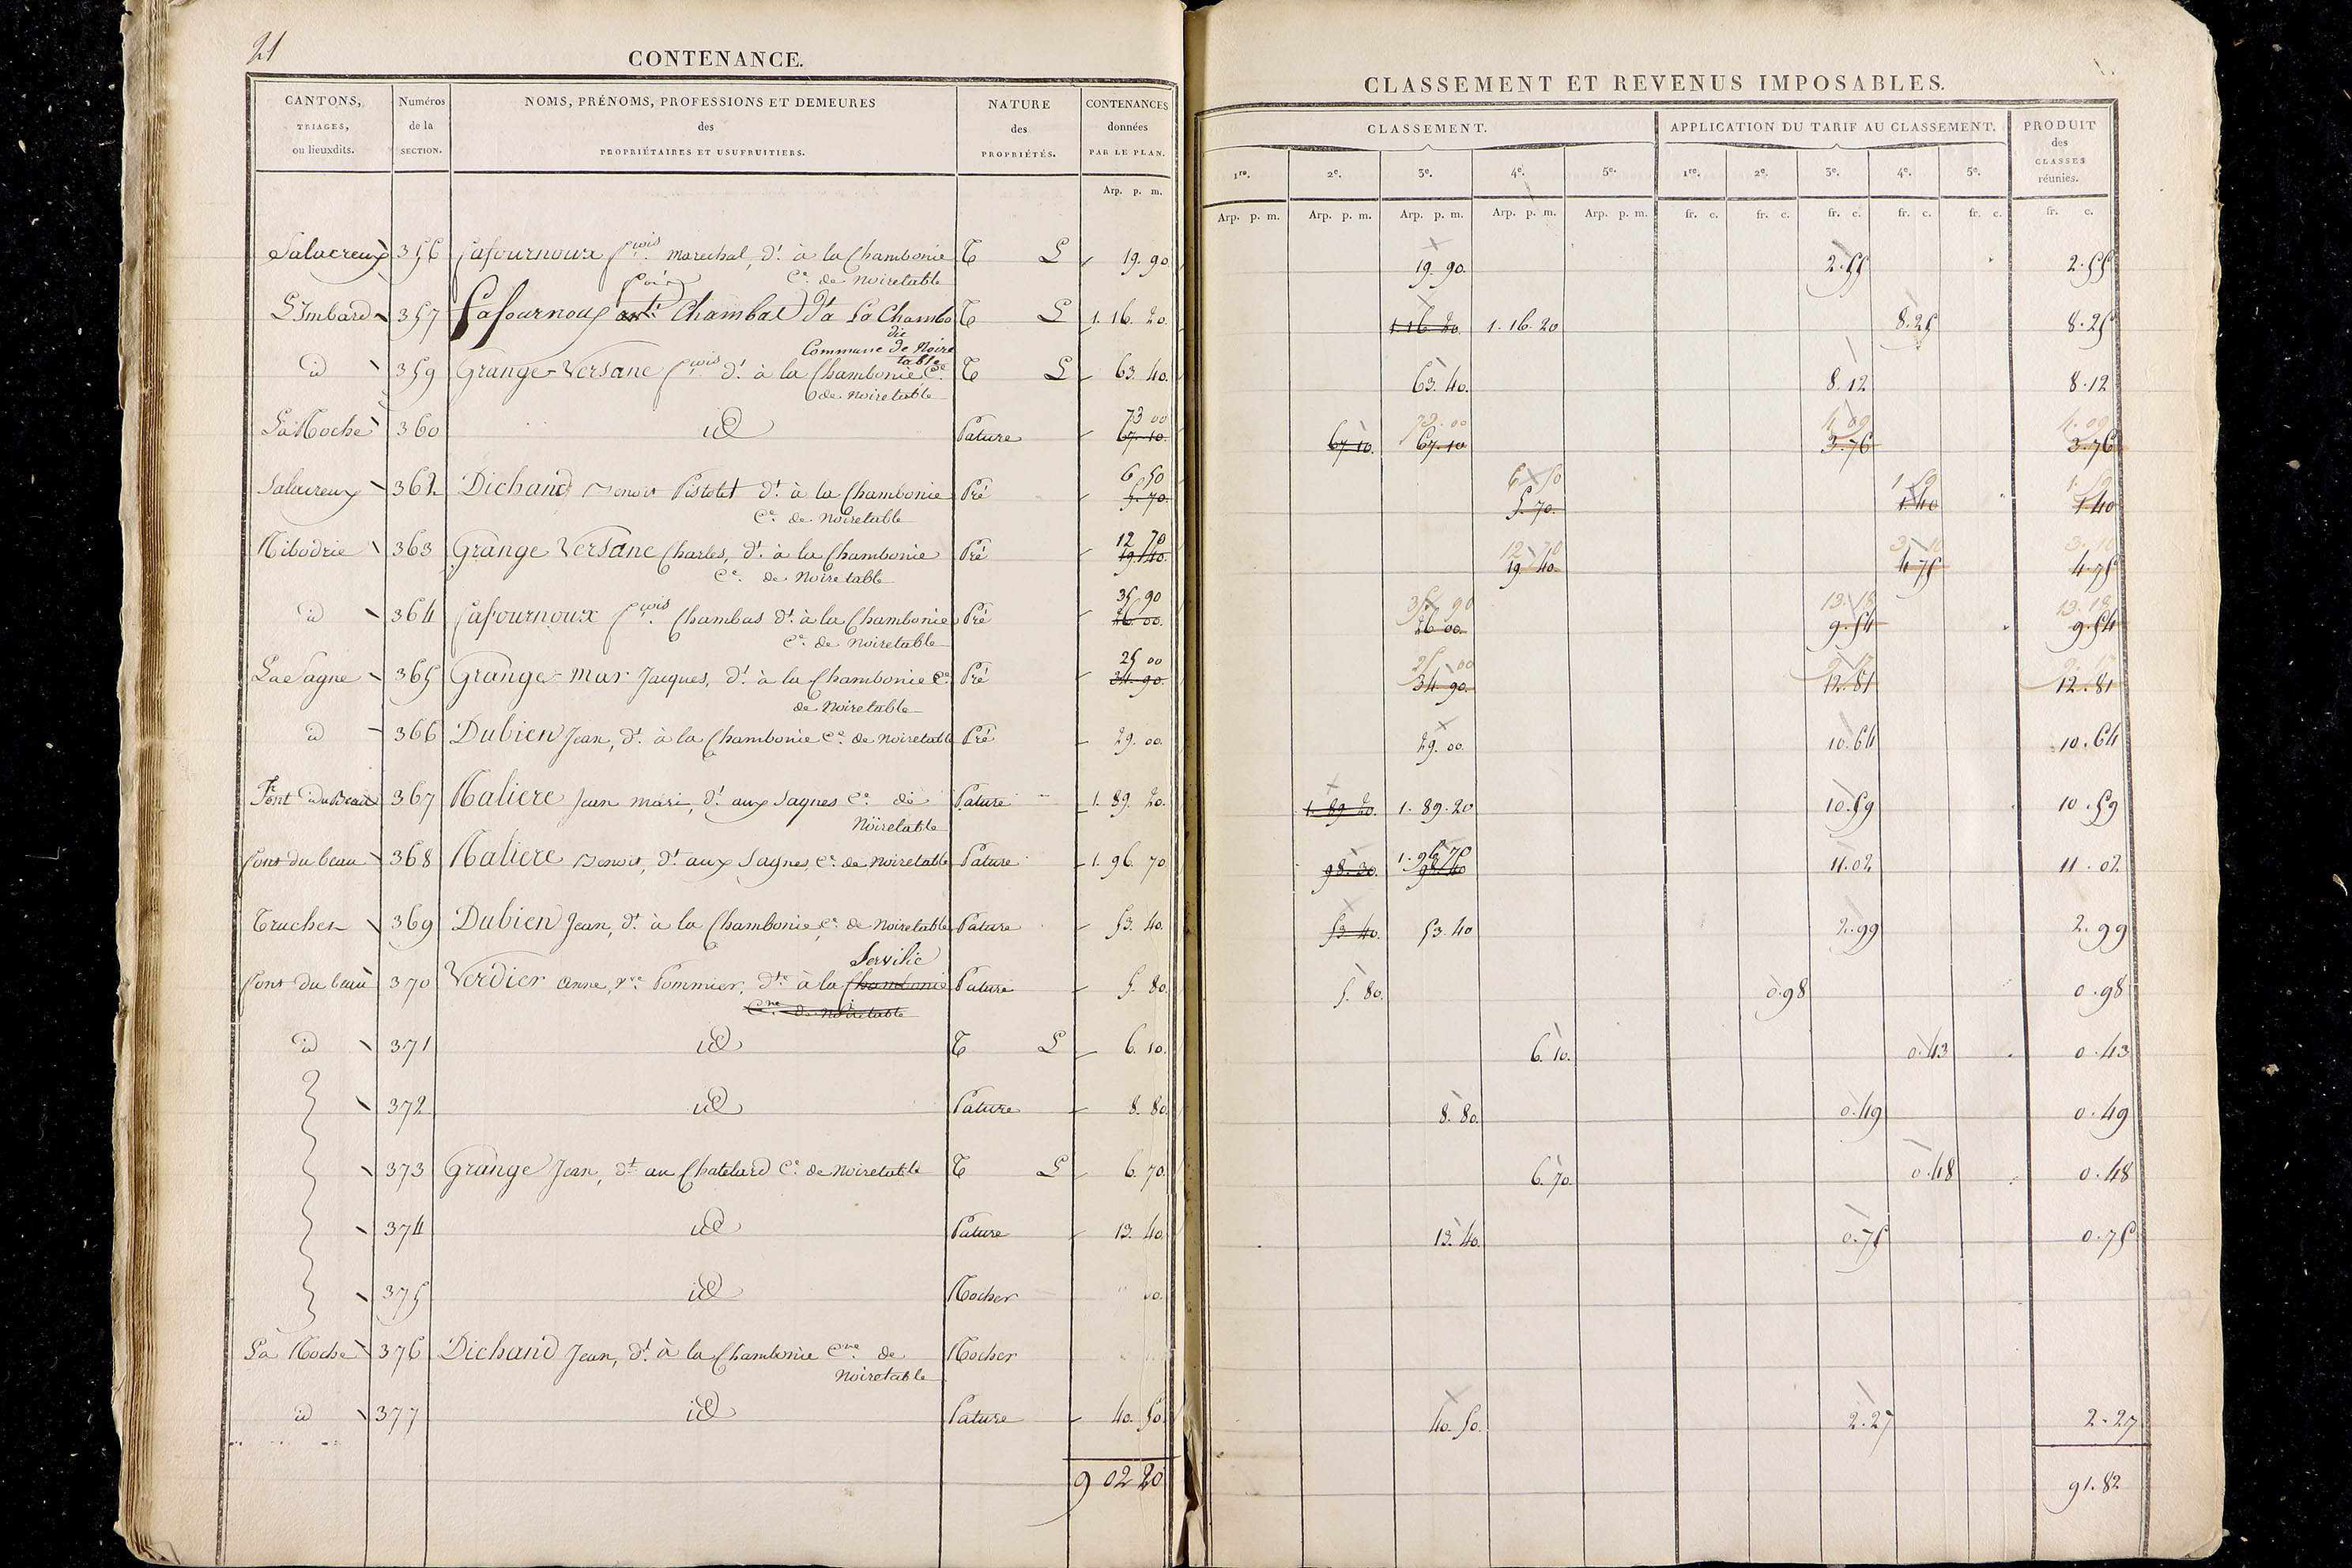 21
CONTENANCE.
CANTONS, TRIAGES, ou lieuxdits.
Numéros de la SECTION.
NOMS, PRÉNOMS, PROFESSIONS ET DEMEURES des PROPRIÉTAIRES ET USUFRUITIERS.
NATURE des PROPRIÉTÉS.
CONTENANCES données PAR LE PLAN.
Arp. p. m.
CLASSEMENT ET REVENUS IMPOSABLES.
CLASSEMENT.
APPLICATION DU TARIF AU CLASSEMENT.
PRODUIT des CLASSES réunies.
1re. 2e. 3e. 4e. 5e. 1re. 2e. 3e. 4e. 5e.
Arp. p. m. Arp. p. m. Arp. p. m. Arp. p. m. Arp. p. m. fr. c. fr. c. fr. c. fr. c. fr. c. fr. c.
Salacreux 356 Lafournoux fçois marechal, dt. à la Chambonie T L 19. 90 19. 90. 2.55 2.55
Ce. de Noiretable
L'Imbard 357 Lafournoux Chambat dt a La Chambo T L 1. 16. 20. 1. 16. 20. 1. 16. 20 8.25 8.25
Commune de Noire
table
id 359 Grange-Versane fçois dt. à la Chambonie Ce. T L 63. 40. 63. 40. 8.12 8.12
de Noiretable
73 00 73. 00 4.09 4.09
La Roche 360 id Pature 67. 10. 67. 10. 67. 10 3.76 3.76
6 50 6 50 1.59 1.59
Salacreux 362 Dichand Benoit Pistolet dt. à la Chambonie Pré 5. 70. 5. 70. 1.40 1.40
Ce. de Noiretable
12 70 12 70 3.10 3.10
Ribodrie 363 Grange Versane Charles, dt. à la Chambonie Pré 19. 40. 19. 40. 4.75 4.75
Ce. de Noiretable
35 90 35 90 13.18 13.18
id 364 Lafournoux fçois. Chambas dt. à la Chambonie Pré 26. 00. 26 00. 9.54 9.54
Ce. de Noiretable
25 00 25 00 9.17 9.17
La Sagne 365 Grange-mas Jacques, dt. à la Chambonie Ce. Pré 34. 90. 34. 90. 12.81 12.81
de Noiretable
id 366 Dubien Jean, dt. à la Chambonie Ce. de Noiretable Pré 29. 00. 29. 00. 10.64 10.64
Font du Beau 367 Raliere Jean mari, dt. aux Sagnes Ce. de Pature 1. 89. 20. 1. 89. 20. 1. 89. 20 10.59 10.59
Noiretable
Font du beau 368 Raliere Benoit, dt. aux Sagnes, Ce. de Noiretable Pature 1. 96. 70 98. 30. 1. 96 70 11.02 11.02
Truches 369 Dubien Jean, dt. à la Chambonie, Ce. de Noiretable Pature 53. 40. 53. 40. 53. 40 2.99 2.99
Servilie
Font du beau 370 Verdier Anne, vve. Pommier, dte. à la Chambonie Pature 5. 80. 5. 80. 0.98 0.98
Cne. de Noiretable
id 371 id T L 6. 10. 6. 10. 0.43 0.43
372 id Pature 8. 80. 8. 80. 0.49 0.49
373 Grange Jean, dt. au Chatelard Ce. de Noiretable T L 6. 70. 6. 70. 0.48 0.48
374 id Pature 13. 40. 13. 40. 0.75 0.75
375 id Rocher
La Roche 376 Dichand Jean, dt. à la Chambonie Cne. de Rocher
Noiretable
id 377 id Pature 40. 50. 40. 50. 2.27 2.27
9 02 20 91.82